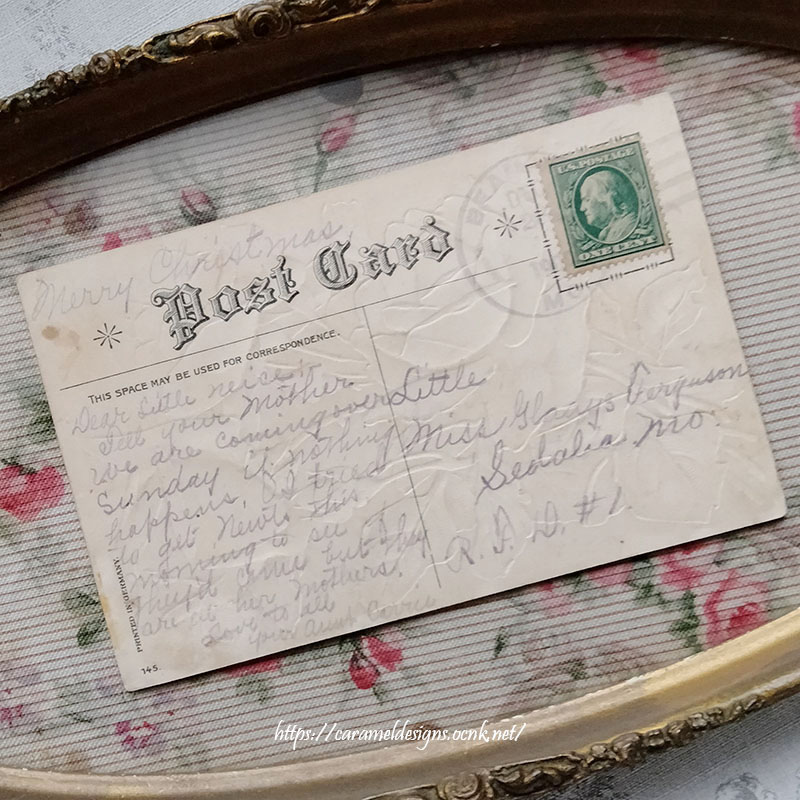 Merry Christmas
Post Card
THIS SPACE MAY BE USED FOR CORRESPONDENCE.
U.S. POSTAGE
ONE CENT
MO
Dear Little neice,
Tell your Mother
we are coming over
Sunday if nothing
happens, I tried
to get Newt this
morning to see
if come but they
are at her Mothers.
Love to all
Your Aunt Carrie
Little
Miss Gladys Ferguson
Sedalia Mo.
R. F. D. #1.
PRINTED IN GERMANY
145.
https://carameldesigns.ocnk.net/